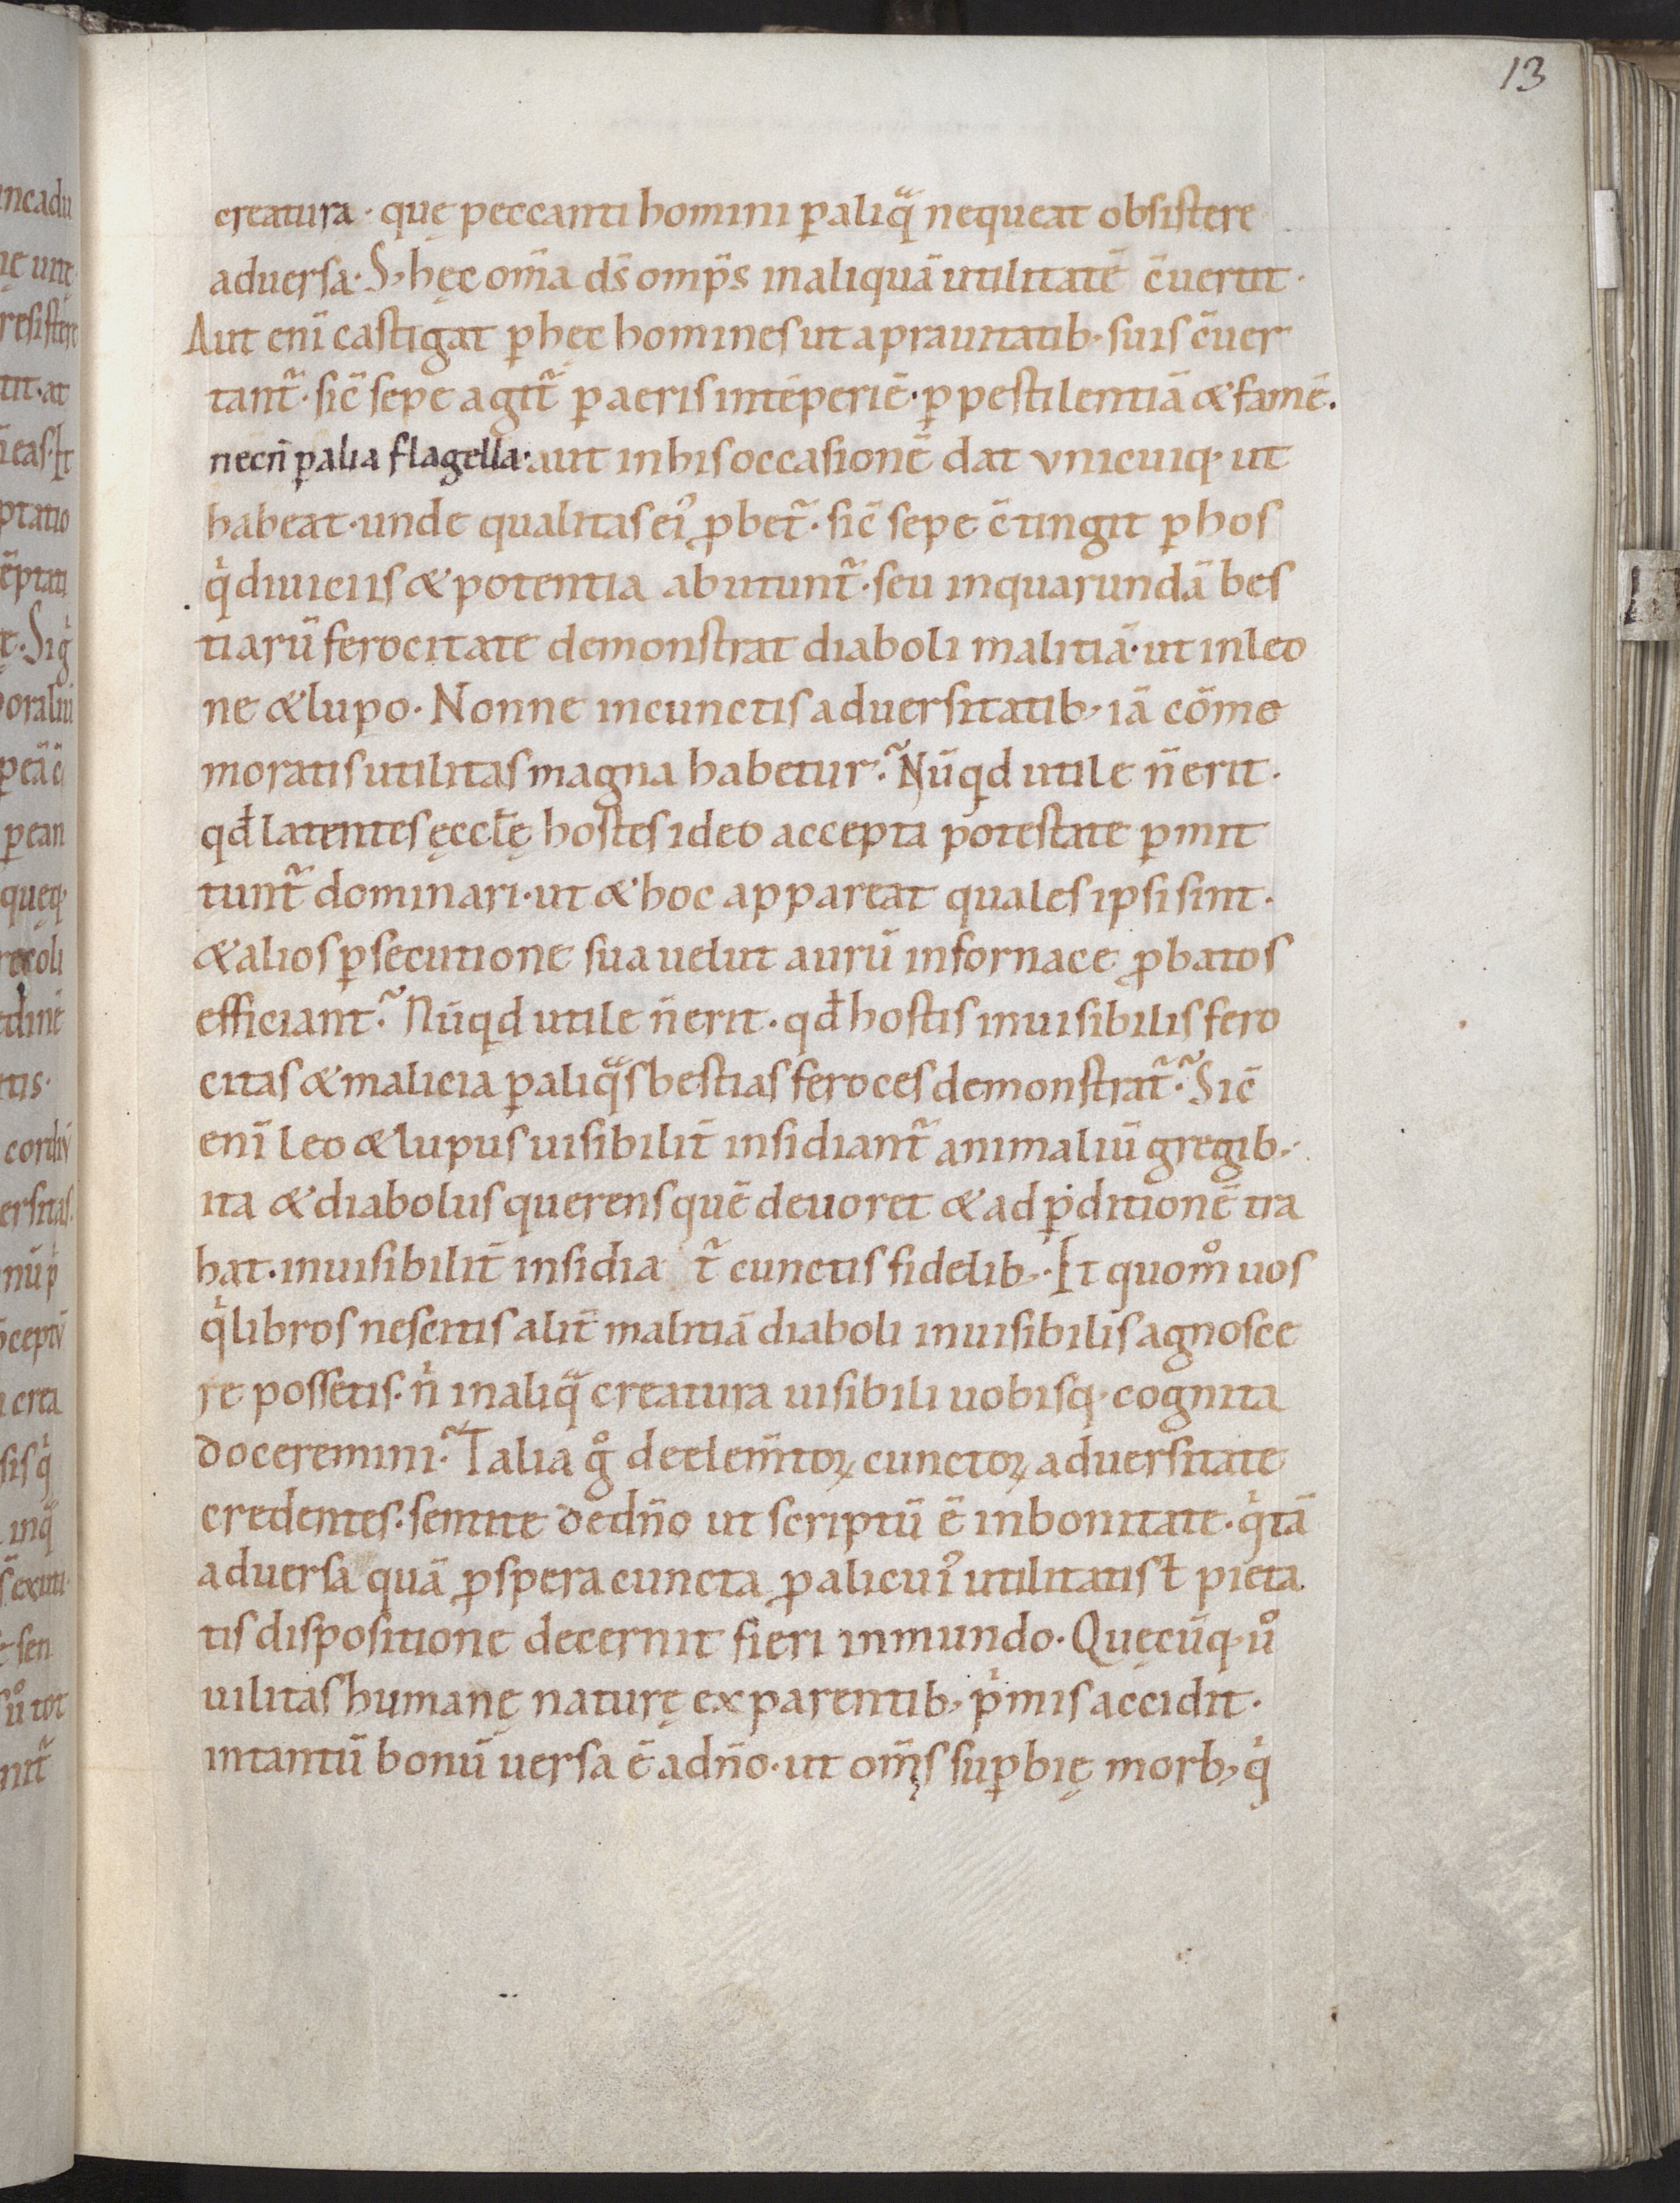 13
creatura · quę peccanti homini ꝑ aliqͣ nequeat obsistere
aduersa · S; hęc om̄a ds̄ omp̄s in aliquā utilitatē c̄uertit ·
Aut eni̅ castigat ꝑ hęc homines ut a prauitatib· suis c̄uer
tant᷑ · sic̄ sepe agit᷑ ꝑ aeris intēperiē · ꝑ pestilentiā & famē .
necn̄ ꝑ alia flagella · aut in his occasionē dat unicuiq· ut
habeat · unde qualitas ei᷒ ꝓbet᷑ · sic̄ sepe c̄tingit ꝑ hos
qͥ diuiciis & potentia abutunt᷑ · seu in quarundā bes
tiarū ferocitate demonstrat diaboli malitiā · ut in leo
ne & lupo · Nonne in cunctis aduersitatib; iā cōme
moratis utilitas magna habetur ? Nūqd utile n̄ erit ·
qđ latentes ęccl̄ę hostes ideo accepta potestate ꝑmit
tunt᷑ dominari · ut & hoc appareat quales ipsi sint ·
& alios ꝑsecutione sua uelut aurū in fornace ꝓbatos
efficiant ? Nūqd utile n̄ erit · qđ hostis inuisibilis fero
citas & malicia ꝑ aliqͣs bestias feroces demonstrat᷑ ? Sic̄
eni̅ leo & lupus uisibilit̄ insidiant᷑ animaliū gregib; ·
ita & diabolus querens quē deuoret & ad ꝑditionē tra
hat · inuisibilit̄ insidia t᷑ cunctis fidelib; · Et quom̊ uos
qͥ libros nescitis alit̄ malitiā diaboli inuisibilis agnosce
re possetis · nͥ in aliqͣ creatura uisibili uobisq· cognita
doceremini ? Talia g̊ de elem̄toꝝ cunctoꝝ aduersitate
credentes · sentite de dn̄o ut scriptū ē in bonitate · qͥ tā
aduersa quā ꝓspera cuncta ꝓ alicui᷒ utilitatis ł pieta
tis dispositione decernit fieri in mundo · Quęcūq· ů
uilitas humanę naturę ex parentib; pͥmis accidit ·
in tantū bonū uersa ē a dn̄o · ut om̄s suꝑbię morb; qͥ